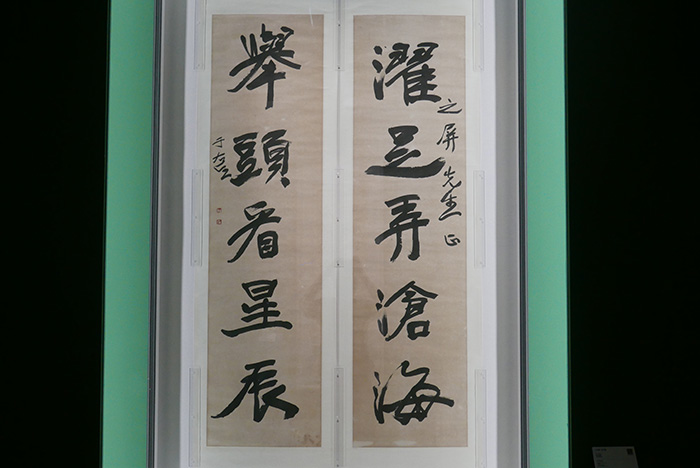 濯足弄滄海
之屏先生正
舉頭看星辰
于右任